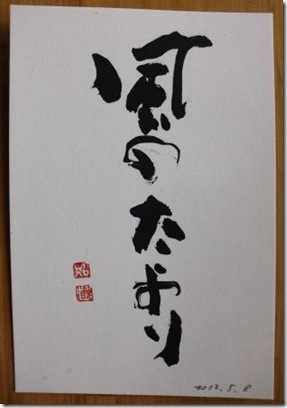 風のたより
2012.5.8